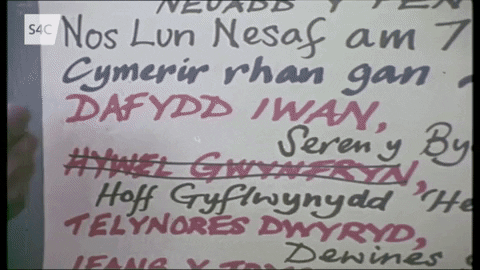 S4C
NEUADD Y PEN
Nos Lun Nesaf am 7
Cymerir rhan gan
DAFYDD IWAN,
Seren y By
HYWEL GWYNFRYN,
Hoff Gyflwynydd 'He
TELYNORES DWYRYD,
Dewines
IEANS Y